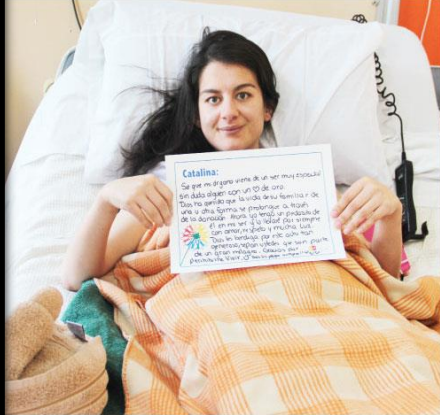 Catalina:
Sé que mi órgano viene de un ser muy especial
sin duda alguien con un ♡ de oro.
Dios ha querido que la vida de su familia de
una u otra forma se prolongue a través
de la donación. Ahora yo tengo un pedacito de
él en mi ser y lo llevaré por siempre
con amor, respeto y mucha luz.
Dios los bendiga por este acto tan
generoso, sepan ustedes que son parte
de un gran milagro. Gracias por
permitirme vivir.